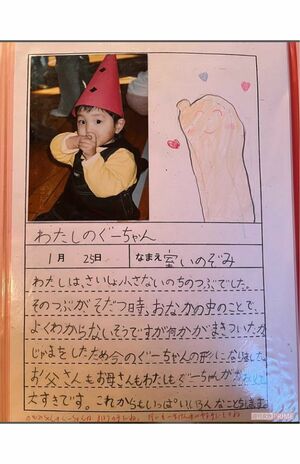 わたしのぐーちゃん
1月 25日 なまえ 室いのぞみ
わたしは、さいしょ小さないのちのつぶでした。
そのつぶがそだつ時、おなかの中のことで、
よくわからないそうですが何かがまきついたか
じゃまをしたため今のぐーちゃんの形になりました。
お父さんもお母さんもわたしもぐーちゃんが
大すきです。これからもいっぱいいろんなことちょう